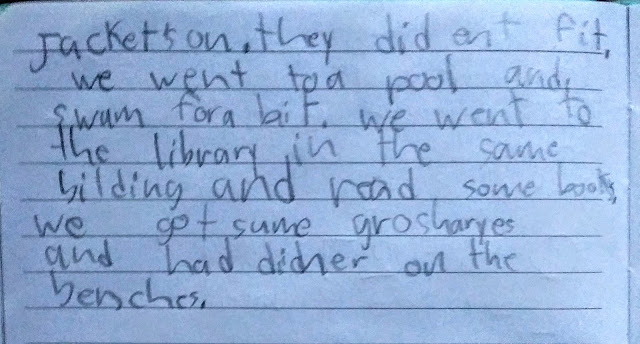 Jackets on, they did ent fit,
we went to a pool and,
swum for a bit. we went to
the library in the same
bilding and read some books,
we got sume grosharyes
and had dinner on the
benches.